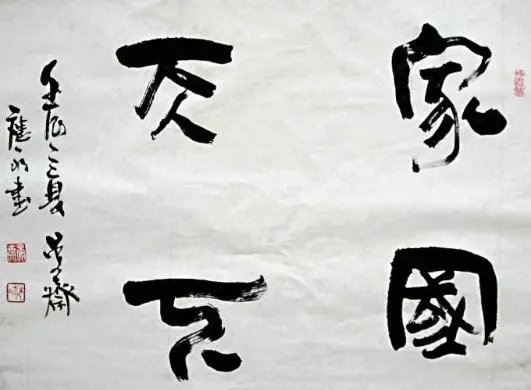 家國
天下
壬辰之夏 齋
書